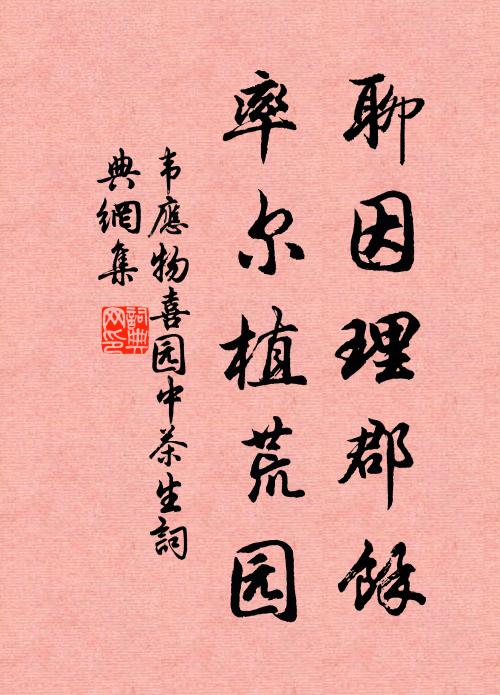 聊因理郡餘
率尔植荒园
韦應物喜园中茶生詞
典網集
詞典
网印